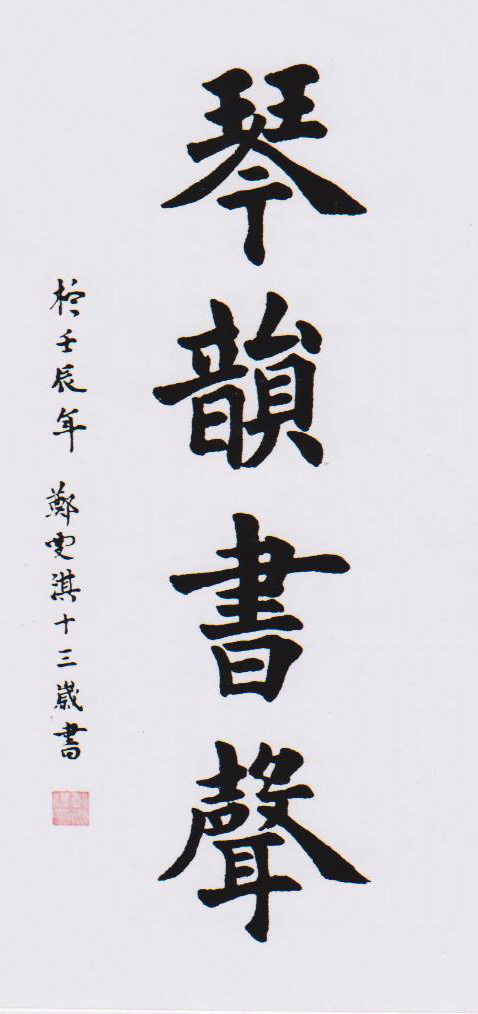 琴韻書聲
於壬辰年 鄭雯淇十三歲書